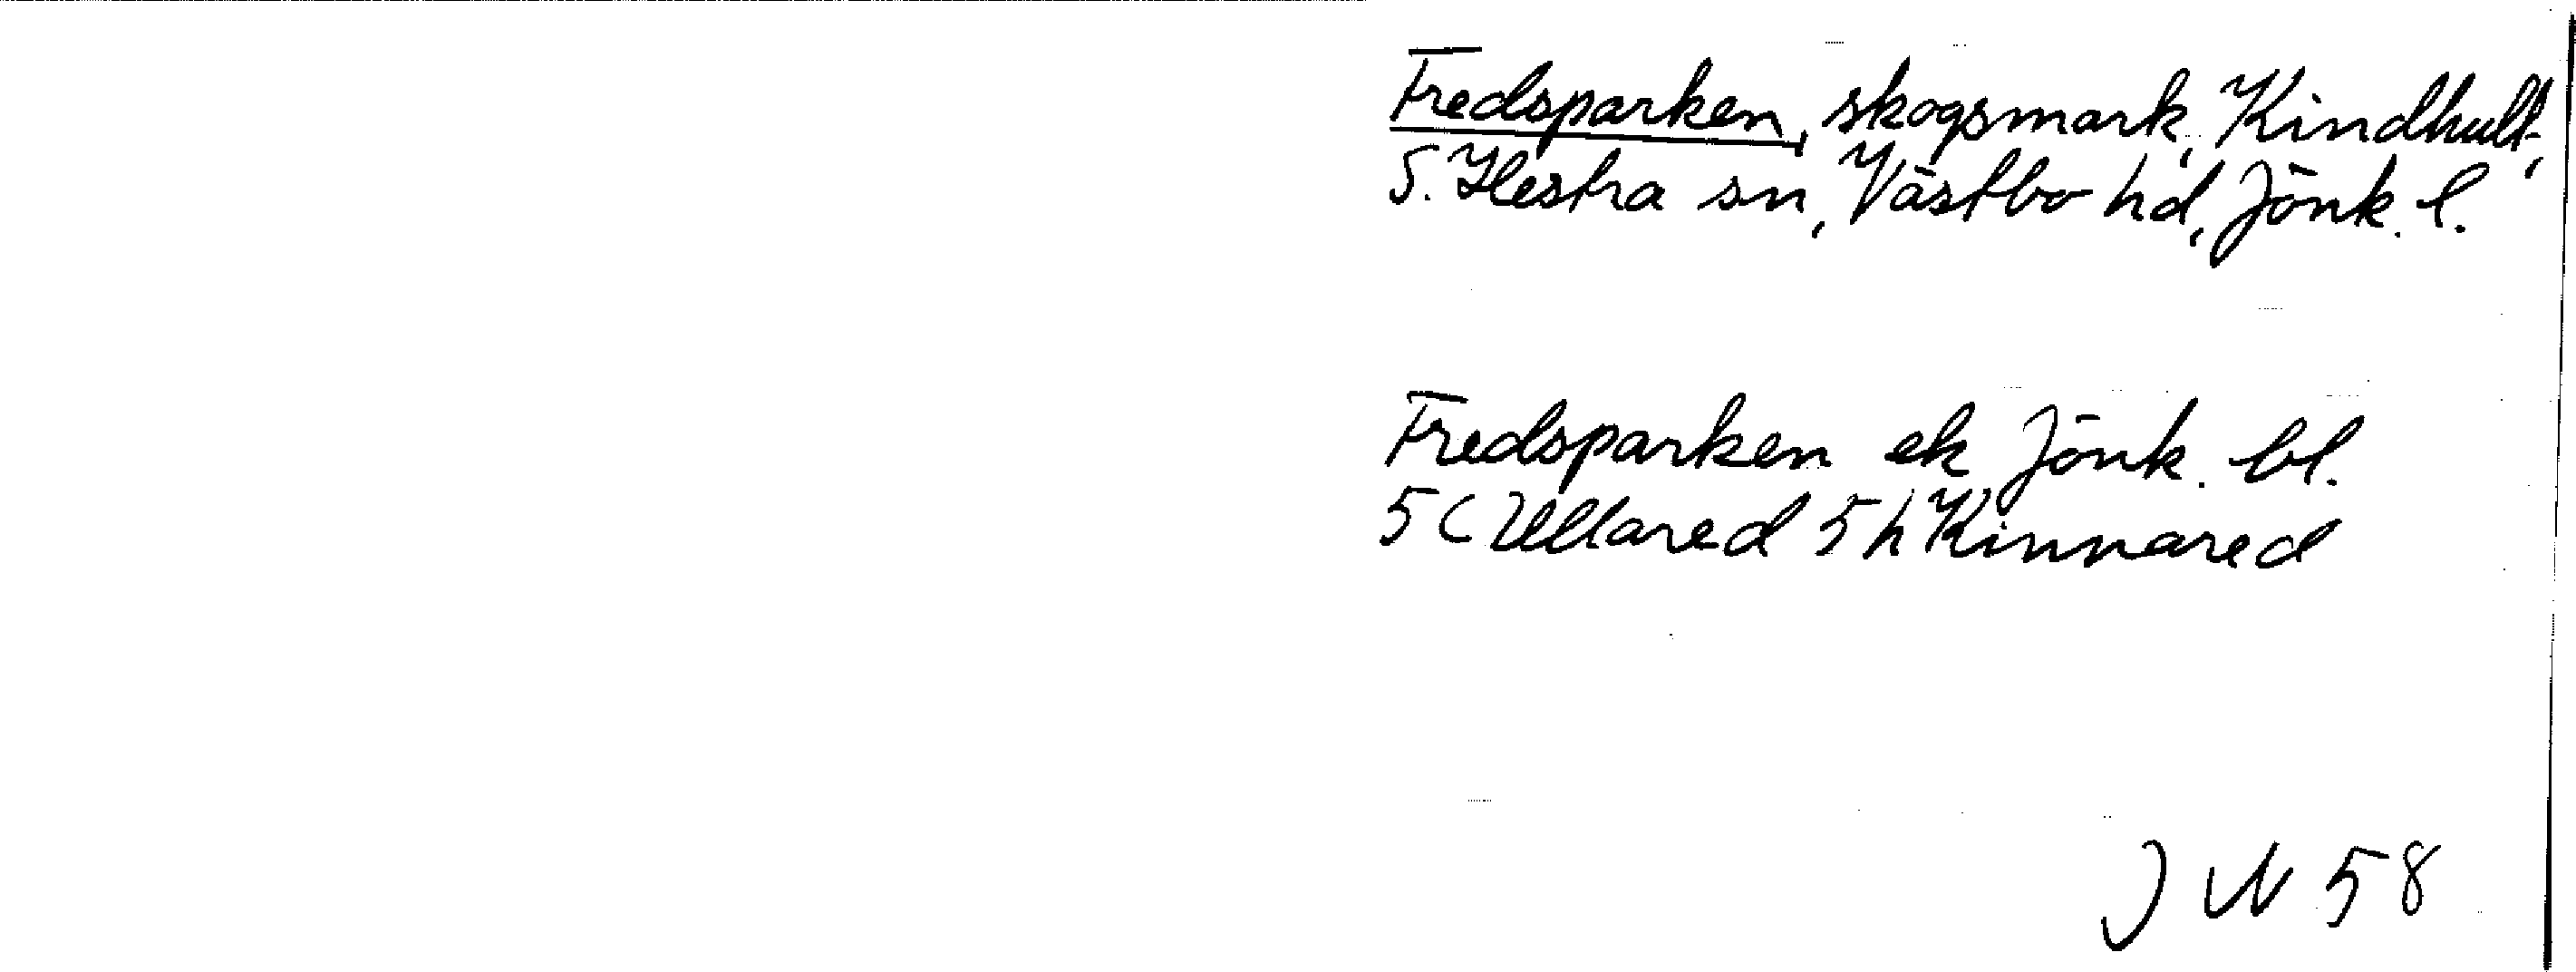 Fredsparken, skogsmark, Kindhult,
S. Hestra sn, Västbo hd, Jönk. l.
Fredsparken ek Jönk. bl.
5C Ullared 5h Kinnared
J N 58